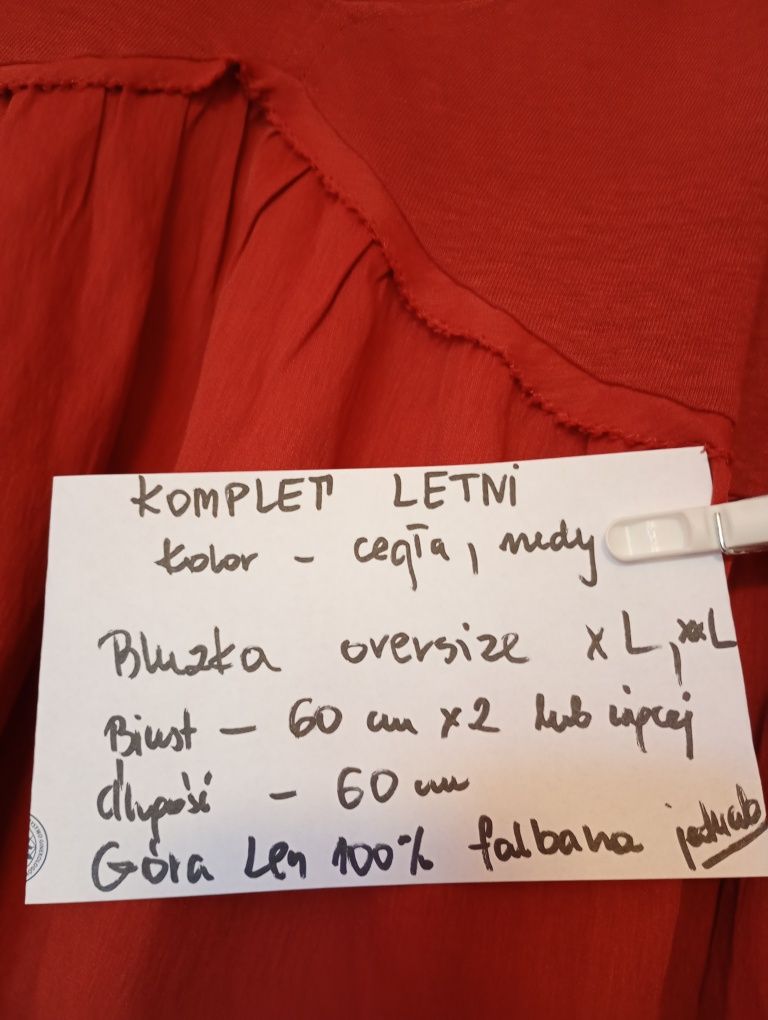 KOMPLET LETNI
kolor - cegła, rudy
Bluzka oversize XL, XXL
Biust - 60 cm x2 lub więcej
długość - 60 cm
Góra Len 100% falbana jedwab